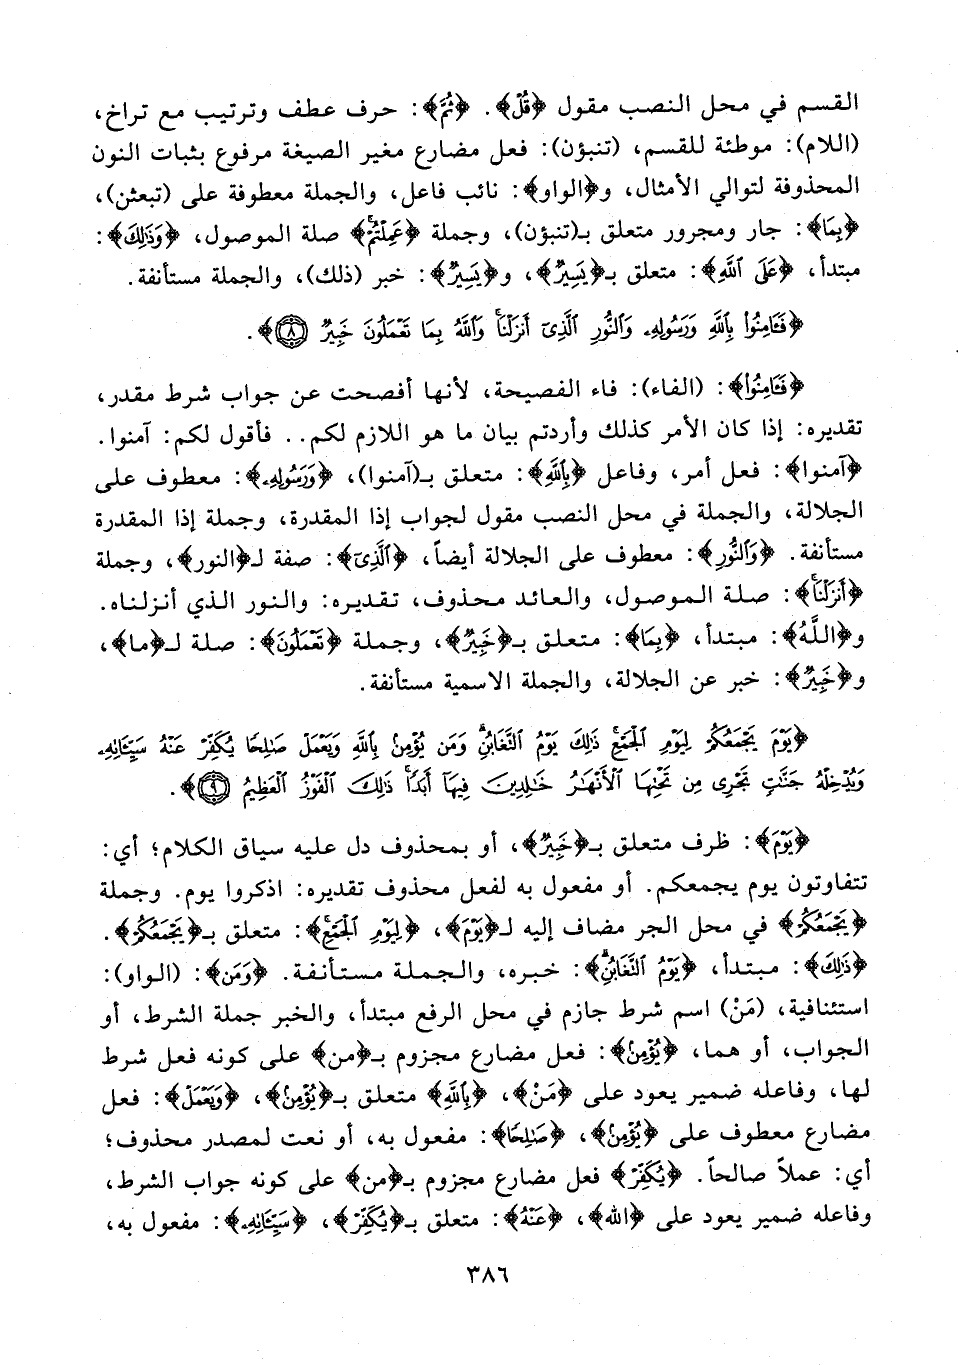 القسم في محل النصب مقول ﴿قُلْ﴾. ﴿ثُمَّ﴾: حرف عطف وترتيب مع تراخ،
(اللام): موطئة للقسم، (تنبؤن): فعل مضارع مغير الصيغة مرفوع بثبات النون
المحذوفة لتوالي الأمثال، و﴿الواو﴾: نائب فاعل، والجملة معطوفة على (تبعثن)،
﴿بِمَا﴾: جار ومجرور متعلق بـ(تنبؤن)، وجملة ﴿عَمِلْتُمْ﴾ صلة الموصول، ﴿وَذَٰلِكَ﴾:
مبتدأ، ﴿عَلَى ٱللَّهِ﴾: متعلق بـ﴿يَسِيرٌ﴾، و﴿يَسِيرٌ﴾: خبر (ذلك)، والجملة مستأنفة.
﴿فَـَٔامِنُوا۟ بِٱللَّهِ وَرَسُولِهِۦ وَٱلنُّورِ ٱلَّذِىٓ أَنزَلْنَا ۚ وَٱللَّهُ بِمَا تَعْمَلُونَ خَبِيرٌ ٨﴾.
﴿فَـَٔامِنُوا۟﴾: (الفاء): فاء الفصيحة، لأنها أفصحت عن جواب شرط مقدر،
تقديره: إذا كان الأمر كذلك وأردتم بيان ما هو اللازم لكم.. فأقول لكم: آمنوا.
﴿آمنوا﴾: فعل أمر، وفاعل ﴿بِٱللَّهِ﴾: متعلق بـ(آمنوا)، ﴿وَرَسُولِهِۦ﴾: معطوف على
الجلالة، والجملة في محل النصب مقول لجواب إذا المقدرة، وجملة إذا المقدرة
مستأنفة. ﴿وَٱلنُّورِ﴾: معطوف على الجلالة أيضاً، ﴿ٱلَّذِىٓ﴾: صفة لـ﴿النور﴾، وجملة
﴿أَنزَلْنَا ۚ﴾: صلة الموصول، والعائد محذوف، تقديره: والنور الذي أنزلناه.
و﴿اللَّهُ﴾: مبتدأ، ﴿بِمَا﴾: متعلق بـ﴿خَبِيرٌ﴾، وجملة ﴿تَعْمَلُونَ﴾: صلة لـ﴿ما﴾،
و﴿خَبِيرٌ﴾: خبر عن الجلالة، والجملة الاسمية مستأنفة.
﴿يَوْمَ يَجْمَعُكُمْ لِيَوْمِ ٱلْجَمْعِ ۖ ذَٰلِكَ يَوْمُ ٱلتَّغَابُنِ ۗ وَمَن يُؤْمِنۢ بِٱللَّهِ وَيَعْمَلْ صَٰلِحًا يُكَفِّرْ عَنْهُ سَيِّـَٔاتِهِۦ
وَيُدْخِلْهُ جَنَّٰتٍ تَجْرِى مِن تَحْتِهَا ٱلْأَنْهَٰرُ خَٰلِدِينَ فِيهَآ أَبَدًا ۚ ذَٰلِكَ ٱلْفَوْزُ ٱلْعَظِيمُ ٩﴾.
﴿يَوْمَ﴾: ظرف متعلق بـ﴿خَبِيرٌ﴾، أو بمحذوف دل عليه سياق الكلام؛ أي:
تتفاوتون يوم يجمعكم. أو مفعول به لفعل محذوف تقديره: اذكروا يوم. وجملة
﴿يَجْمَعُكُمْ﴾ في محل الجر مضاف إليه لـ﴿يَوْمَ﴾، ﴿لِيَوْمِ ٱلْجَمْعِ ۖ﴾: متعلق بـ﴿يَجْمَعُكُمْ﴾.
﴿ذَٰلِكَ﴾: مبتدأ، ﴿يَوْمُ ٱلتَّغَابُنِ ۗ﴾: خبره، والجملة مستأنفة. ﴿وَمَن﴾: (الواو):
استئنافية، (مَنْ) اسم شرط جازم في محل الرفع مبتدأ، والخبر جملة الشرط، أو
الجواب، أو هما، ﴿يُؤْمِنۢ﴾: فعل مضارع مجزوم بـ﴿من﴾ على كونه فعل شرط
لها، وفاعله ضمير يعود على ﴿مَنْ﴾، ﴿بِٱللَّهِ﴾ متعلق بـ﴿يُؤْمِنۢ﴾، ﴿وَيَعْمَلْ﴾: فعل
مضارع معطوف على ﴿يُؤْمِنۢ﴾، ﴿صَٰلِحًا﴾: مفعول به، أو نعت لمصدر محذوف؛
أي: عملاً صالحاً. ﴿يُكَفِّرْ﴾ فعل مضارع مجزوم بـ﴿من﴾ على كونه جواب الشرط،
وفاعله ضمير يعود على ﴿الله﴾، ﴿عَنْهُ﴾: متعلق بـ﴿يُكَفِّرْ﴾، ﴿سَيِّـَٔاتِهِۦ﴾: مفعول به،
٣٨٦